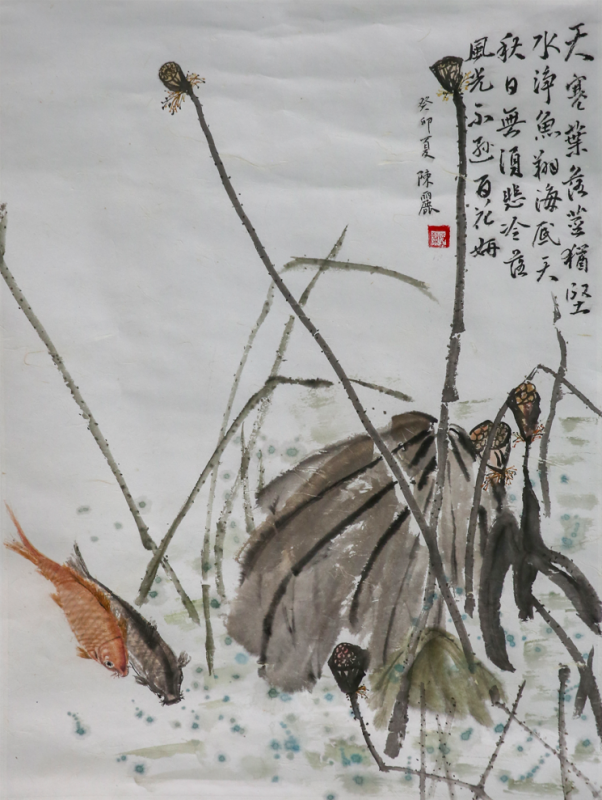 天寒葉落莖猶堅
水淨魚翔海底天
秋日無須悲冷落
風光不遜百花妍
癸卯夏 陳麗